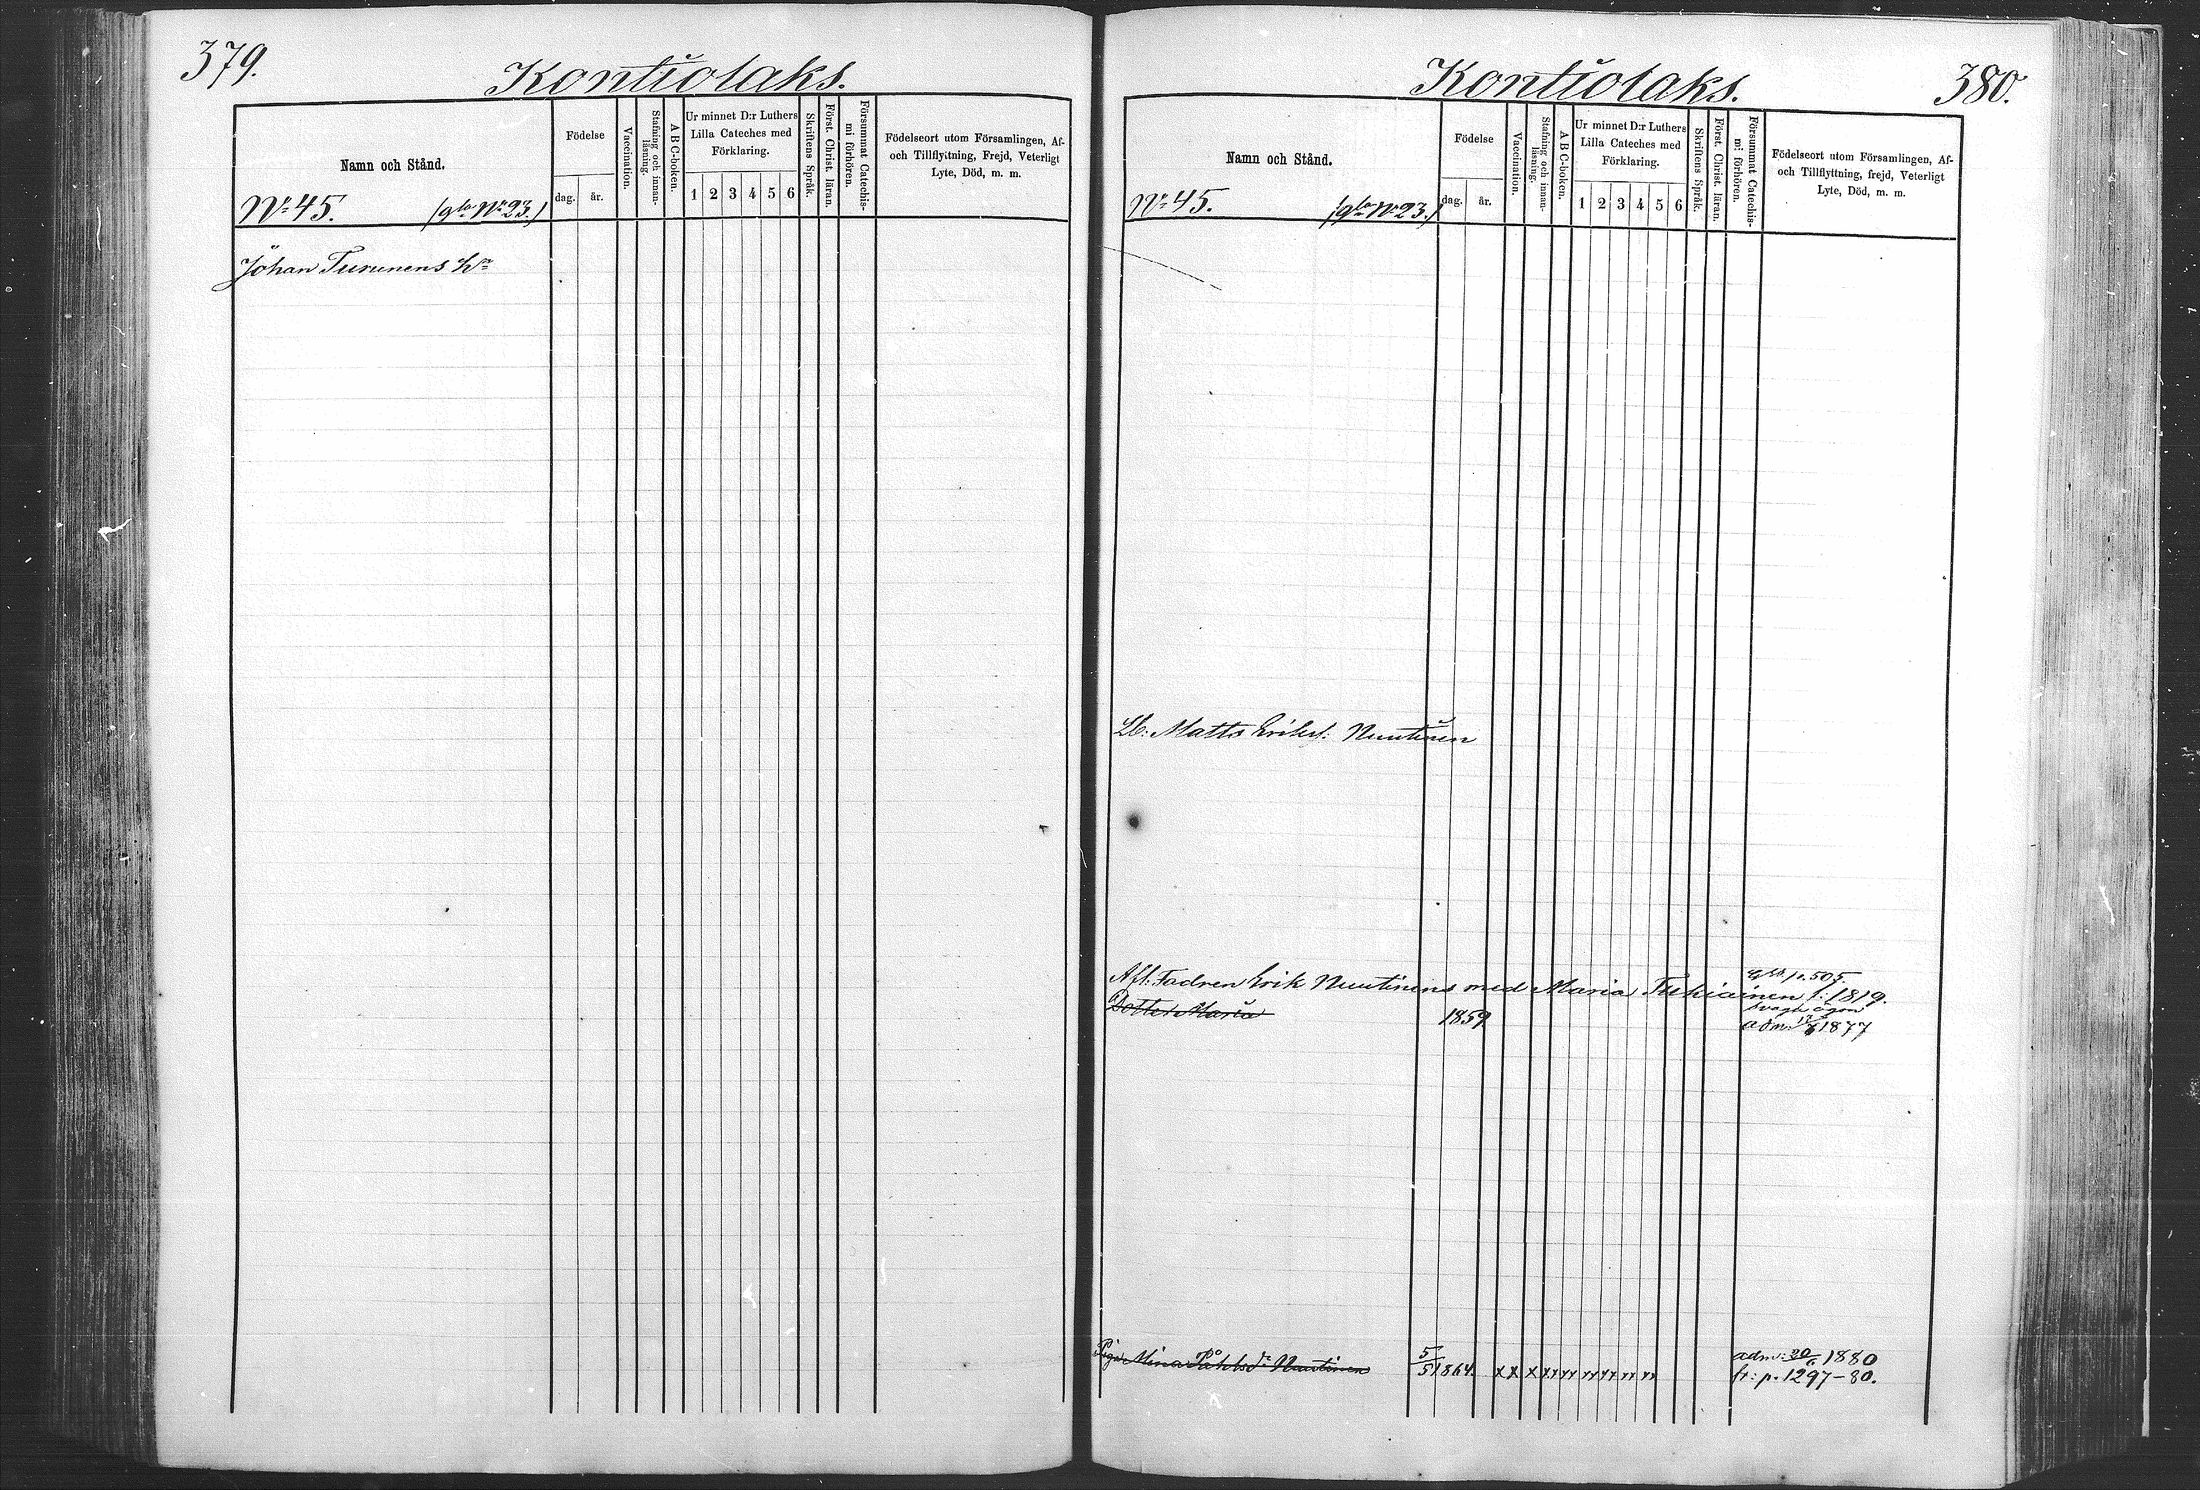 379.
Kontiolaks.
Namn och Stånd.
Födelse
dag. år.
Vaccination.
Stafning och innanläsning.
A B C-boken.
Ur minnet D:r Luthers
Lilla Cateches med
Förklaring.
1 2 3 4 5 6
Skriftens Språk.
Först. Christ. läran.
Försummat Catechismi förhören.
Födelseort utom Församlingen, Af-
och Tillflyttning, Frejd, Veterligt
Lyte, Död, m. m.
No 45. (gla No 23.)
Johan Turunens
Kontiolaks.
380.
Namn och Stånd.
Födelse
dag. år.
Vaccination.
Stafning och innanläsning.
A B C-boken.
Ur minnet D:r Luthers
Lilla Cateches med
Förklaring.
1 2 3 4 5 6
Skriftens Språk.
Först. Christ. läran.
Försummat Catechismi förhören.
Födelseort utom Församlingen, Af-
och Tillflyttning, frejd, Veterligt
Lyte, Död, m. m.
No 45. (gla No 23.)
Lb: Matts Eriks: Nuutinen
p. 505.
Afl. Fadren Erik Nuutinens med Maria Tukiainen f: 1819.
svaga ögon
Dotter Maria 1859 adm. 1877
Piga Mina Påhlsdr Nuutinen 5/5 1864. x x x xx xx xx xx xx xx adm: 20/6 1880
fr: p. 1297-80.